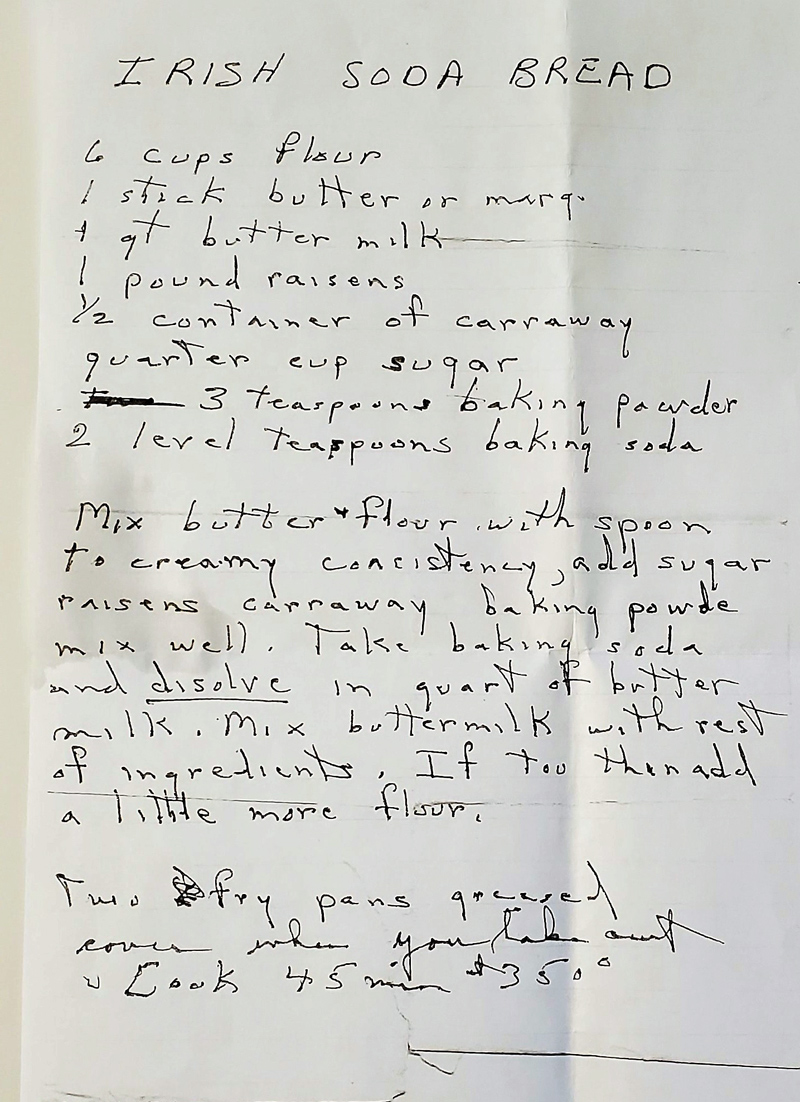 IRISH SODA BREAD
6 cups flour
1 stick butter or marg.
1 qt butter milk
1 pound raisens
1/2 container of carraway
quarter cup sugar
3 teaspoons baking powder
2 level teaspoons baking soda
Mix butter + flour with spoon
to creamy concistency, add sugar
raisens carraway baking powde
mix well. Take baking soda
and disolve in quart of butter
milk. Mix buttermilk with rest
of ingredients. If too thin add
a little more flour.
Two fry pans greased
cover when you take out
Cook 45 min at 350°